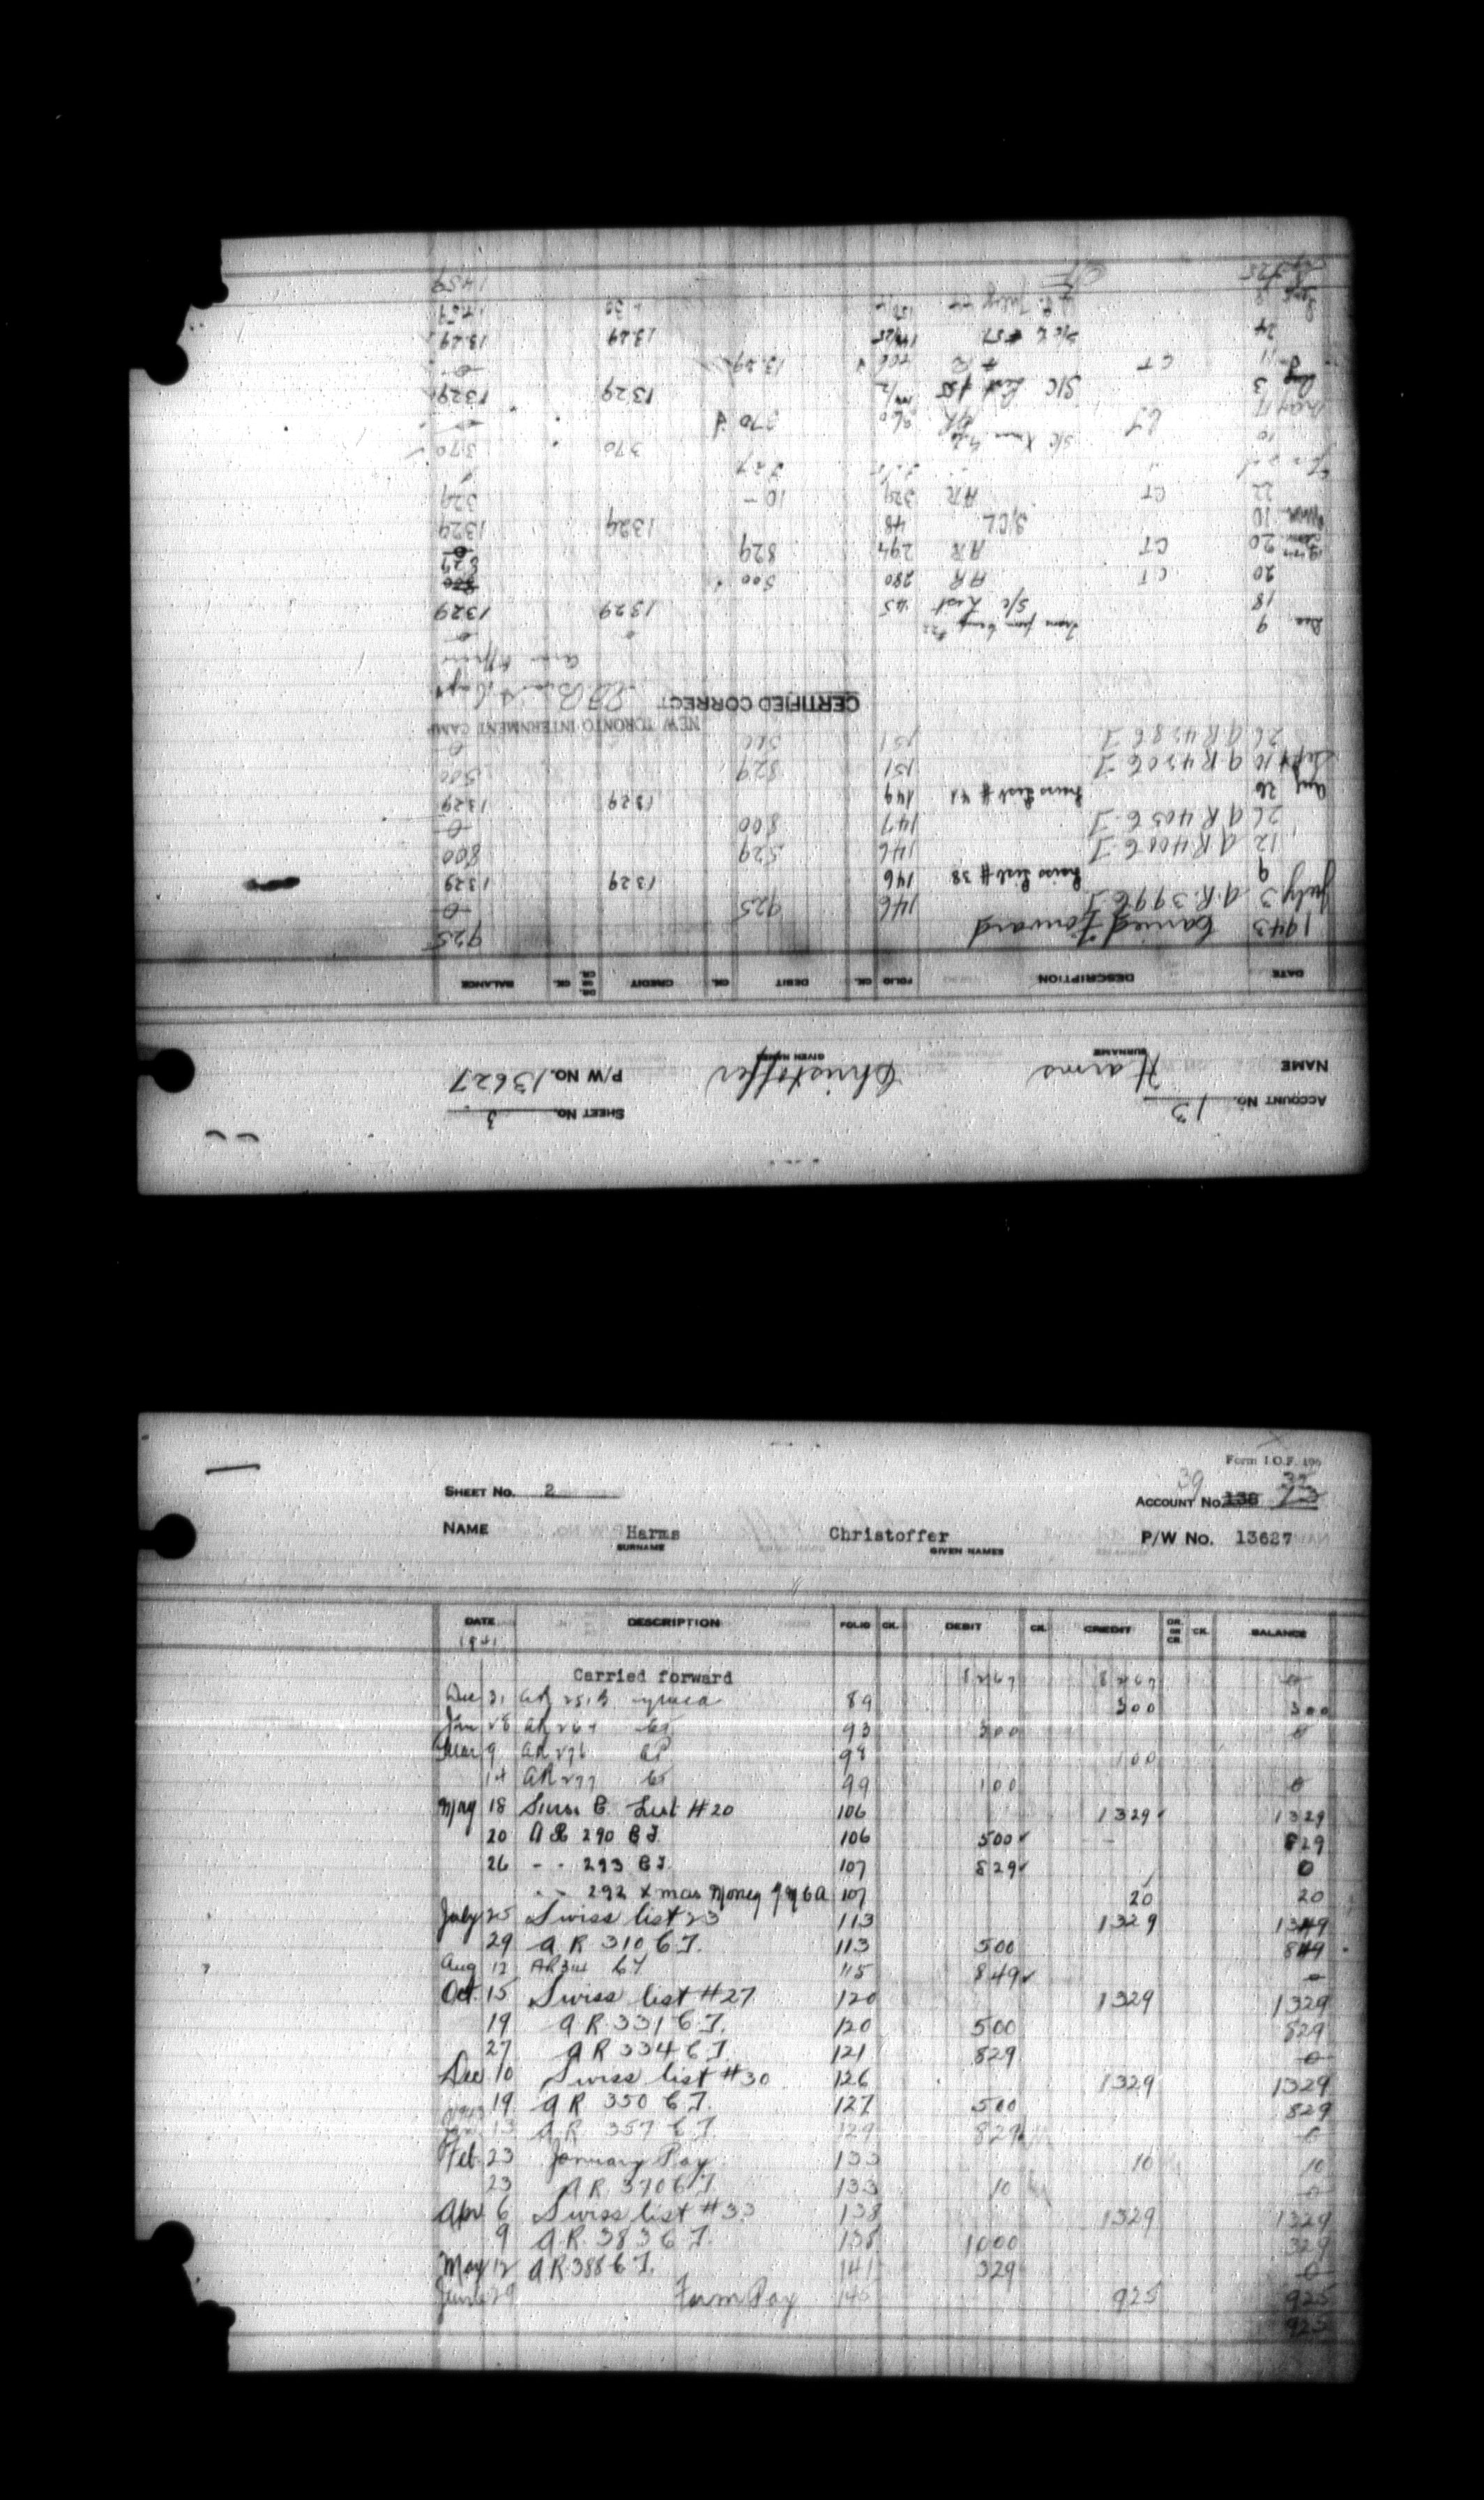 ACCOUNT No. 13 SHEET No. 3
NAME Harms Christoffer P/W No. 13627
SURNAME GIVEN NAMES
DATE DESCRIPTION FOLIO CK. DEBIT CK. CREDIT DR. OR CR. CK. BALANCE
1943 Carried Forward 925
July 3 A.R. 399 C.T. 146 925 0
9 Swiss List # 38 146 1329 1329
12 A R 400 C.T. 146 529 800
26 A R 405 C.T. 147 800 0
Aug 26 Swiss List # 41 149 1329 1329
Sept 10 A.R. 430 C.T. 151 829 500
26 A R 438 C.T. 151 500 0
NEW TORONTO INTERNMENT CAMP
CERTIFIED CORRECT
Dec 9
18 S/C List 45 1329 1329
20 CT AR 280 500 829
20 CT AR 294 829 0
10 S/CL 48 1329 1329
22 CT AR 329 10 - 329
327
10 S/C Xmas 370 370
May 17 CT AR 260 370
Aug 3 S/C List # 55 1329 1329
11 CT AR 706 13.29 0
24 S/C L # 57 13.29 13.29
1459
Sep 25 C/F 1459
Form I.O.F. 196
SHEET No. 2 ACCOUNT No. 138 39 13
NAME Harms Christoffer P/W No. 13627
SURNAME GIVEN NAMES
DATE DESCRIPTION FOLIO CK. DEBIT CK. CREDIT DR. OR CR. CK. BALANCE
1941
Carried forward 8267 8267 0
Dec 31 AR ymca 89 300 300
Jan 28 AR 264 CT 93 300 0
Mar 9 AR 276 98 100
14 AR 277 CT 99 100 0
May 18 Swiss C. List #20 106 1329 1329
20 A R 290 C T. 106 500 829
26 - - 293 C T. 107 829 0
- - 292 Xmas Money YMCA 107 20 20
July 25 Swiss list 23 113 1329 1349
29 A R 310 C T. 113 500 849
Aug 12 AR 314 CT 115 849 0
Oct. 15 Swiss list #27 120 1329 1329
19 A R 331 C.T. 120 500 829
27 A R 334 C T. 121 829 0
Dec 10 Swiss list #30 126 1329 1329
19 A R 350 C T. 127 500 829
1943
Jan 13 A R 357 C T. 129 829 0
Feb. 23 January Pay 133 10 10
23 A R. 370 C T. 133 10 0
Apr 6 Swiss list #33 138 1329 1329
9 A.R. 383 C T. 138 1000 329
May 12 A R 388 C T. 141 329 0
June 29 Farm Pay 145 925 925
925